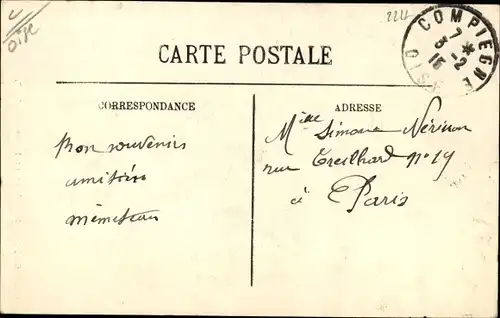 Oise
224
COMPIEGNE
7 * 3 -2 15
OISE
CARTE POSTALE
CORRESPONDANCE
ADRESSE
Bon souvenirs
amitiés
Mlle Simone
rue Treilhard No 19
à Paris